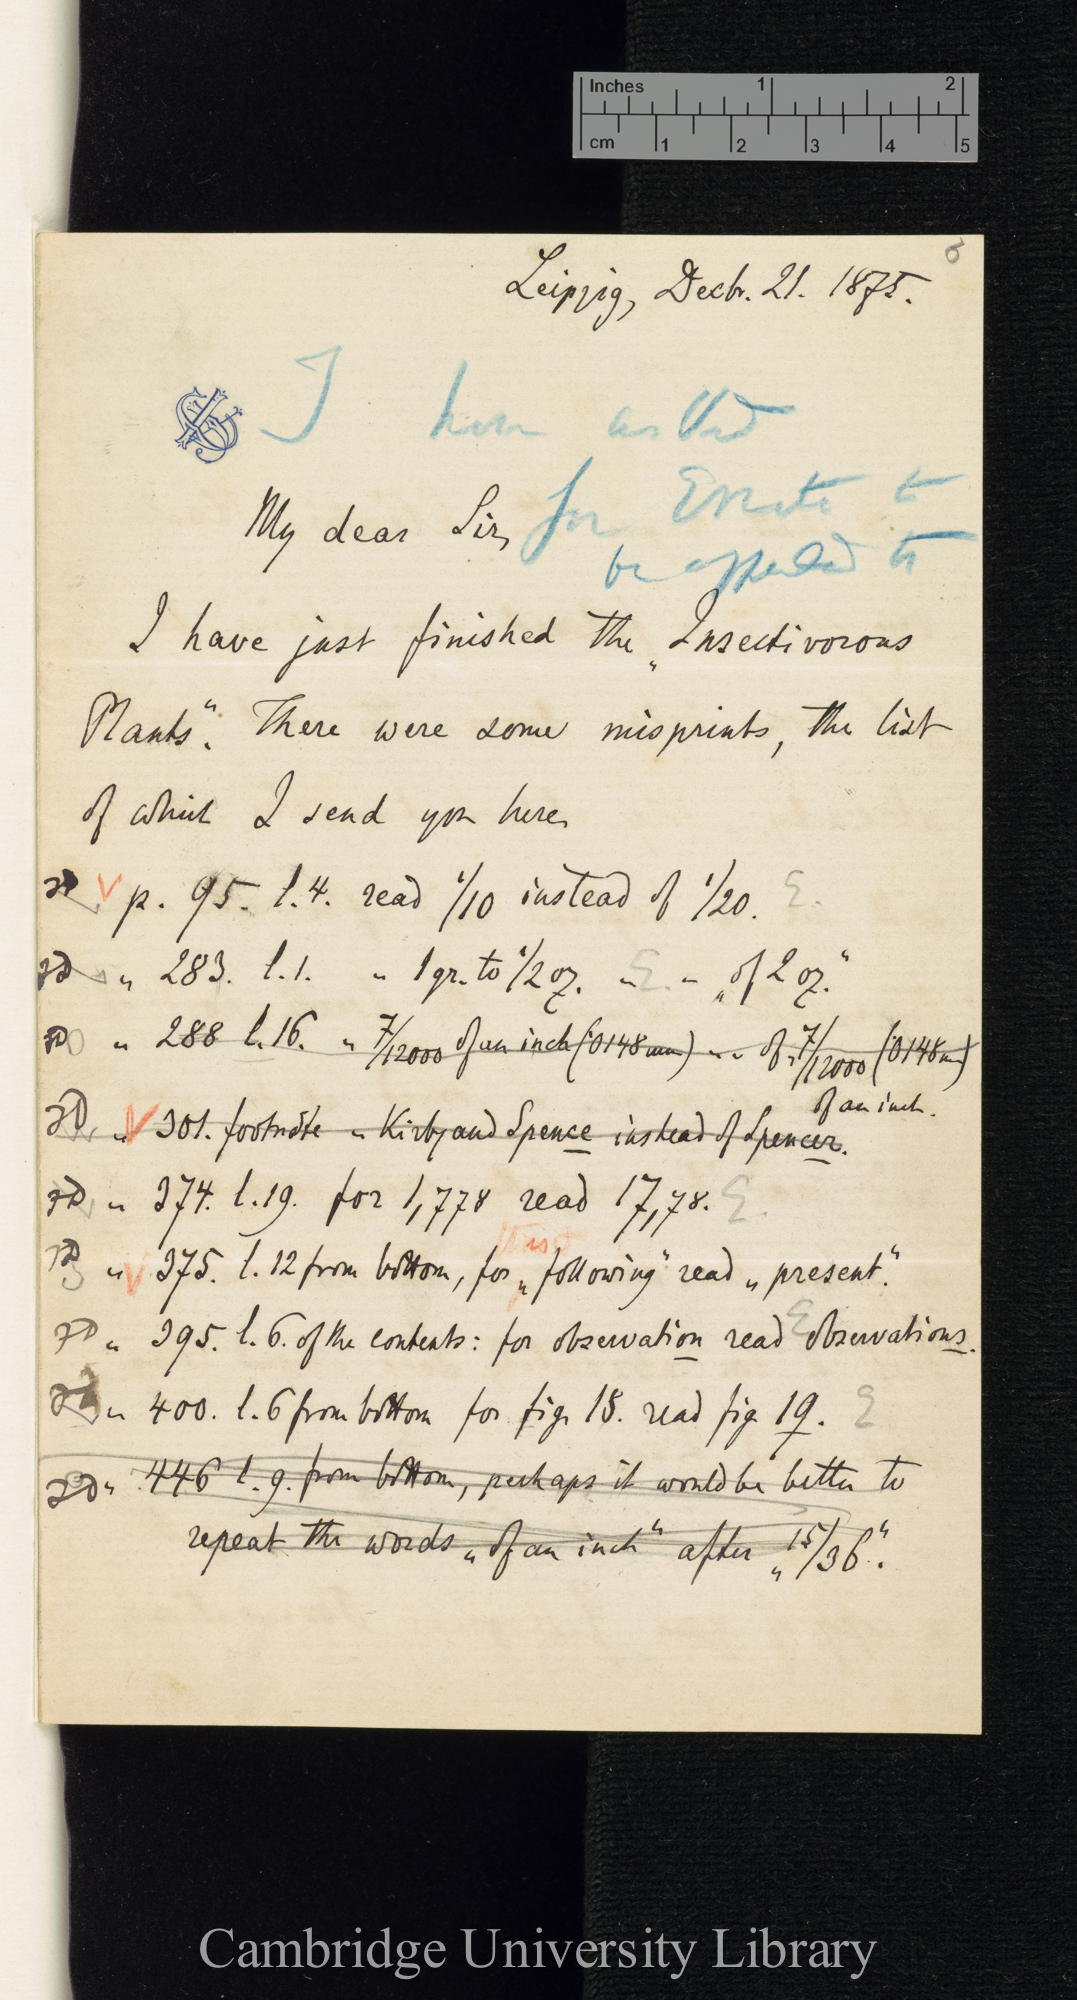 Inches 1 2
cm 1 2 3 4 5
Leipzig, Decbr. 21. 1875.
I have asked
for Errata to
be appended to
My dear Sir,
I have just finished the „Insectivorous
Plants“. There were some misprints, the list
of which I send you here.
p. 95. l. 4. read 1/10 instead of 1/20. E.
„ 283. l. 1. „ 1 gr. to 1/2 oz. „ E „ „of 2 oz.“
„ 288 l. 16. „ 7/12000 of an inch (·0148 mm) „ „ of „7/12000 (·0148 mm)
of an inch.
„ 301. footnote „ Kirby and Spence instead of Spencer.
„ 374. l. 19. for 1,778 read 17,78. E.
„ 375. l. 12 from bottom, for „following“ read „present“.
„ 395. l. 6. of the contents: for observation read E observations.
„ 400. l. 6 from bottom for fig. 18. read fig. 19. E
„ 446 l. 9. from bottom, perhaps it would be better to
repeat the words „of an inch“ after „15/36“.
Cambridge University Library